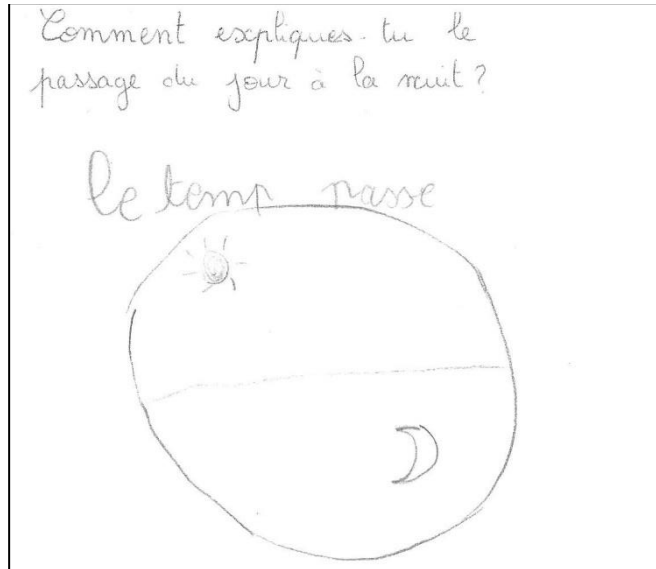 Comment expliques-tu le
passage du jour à la nuit ?
le temp passe